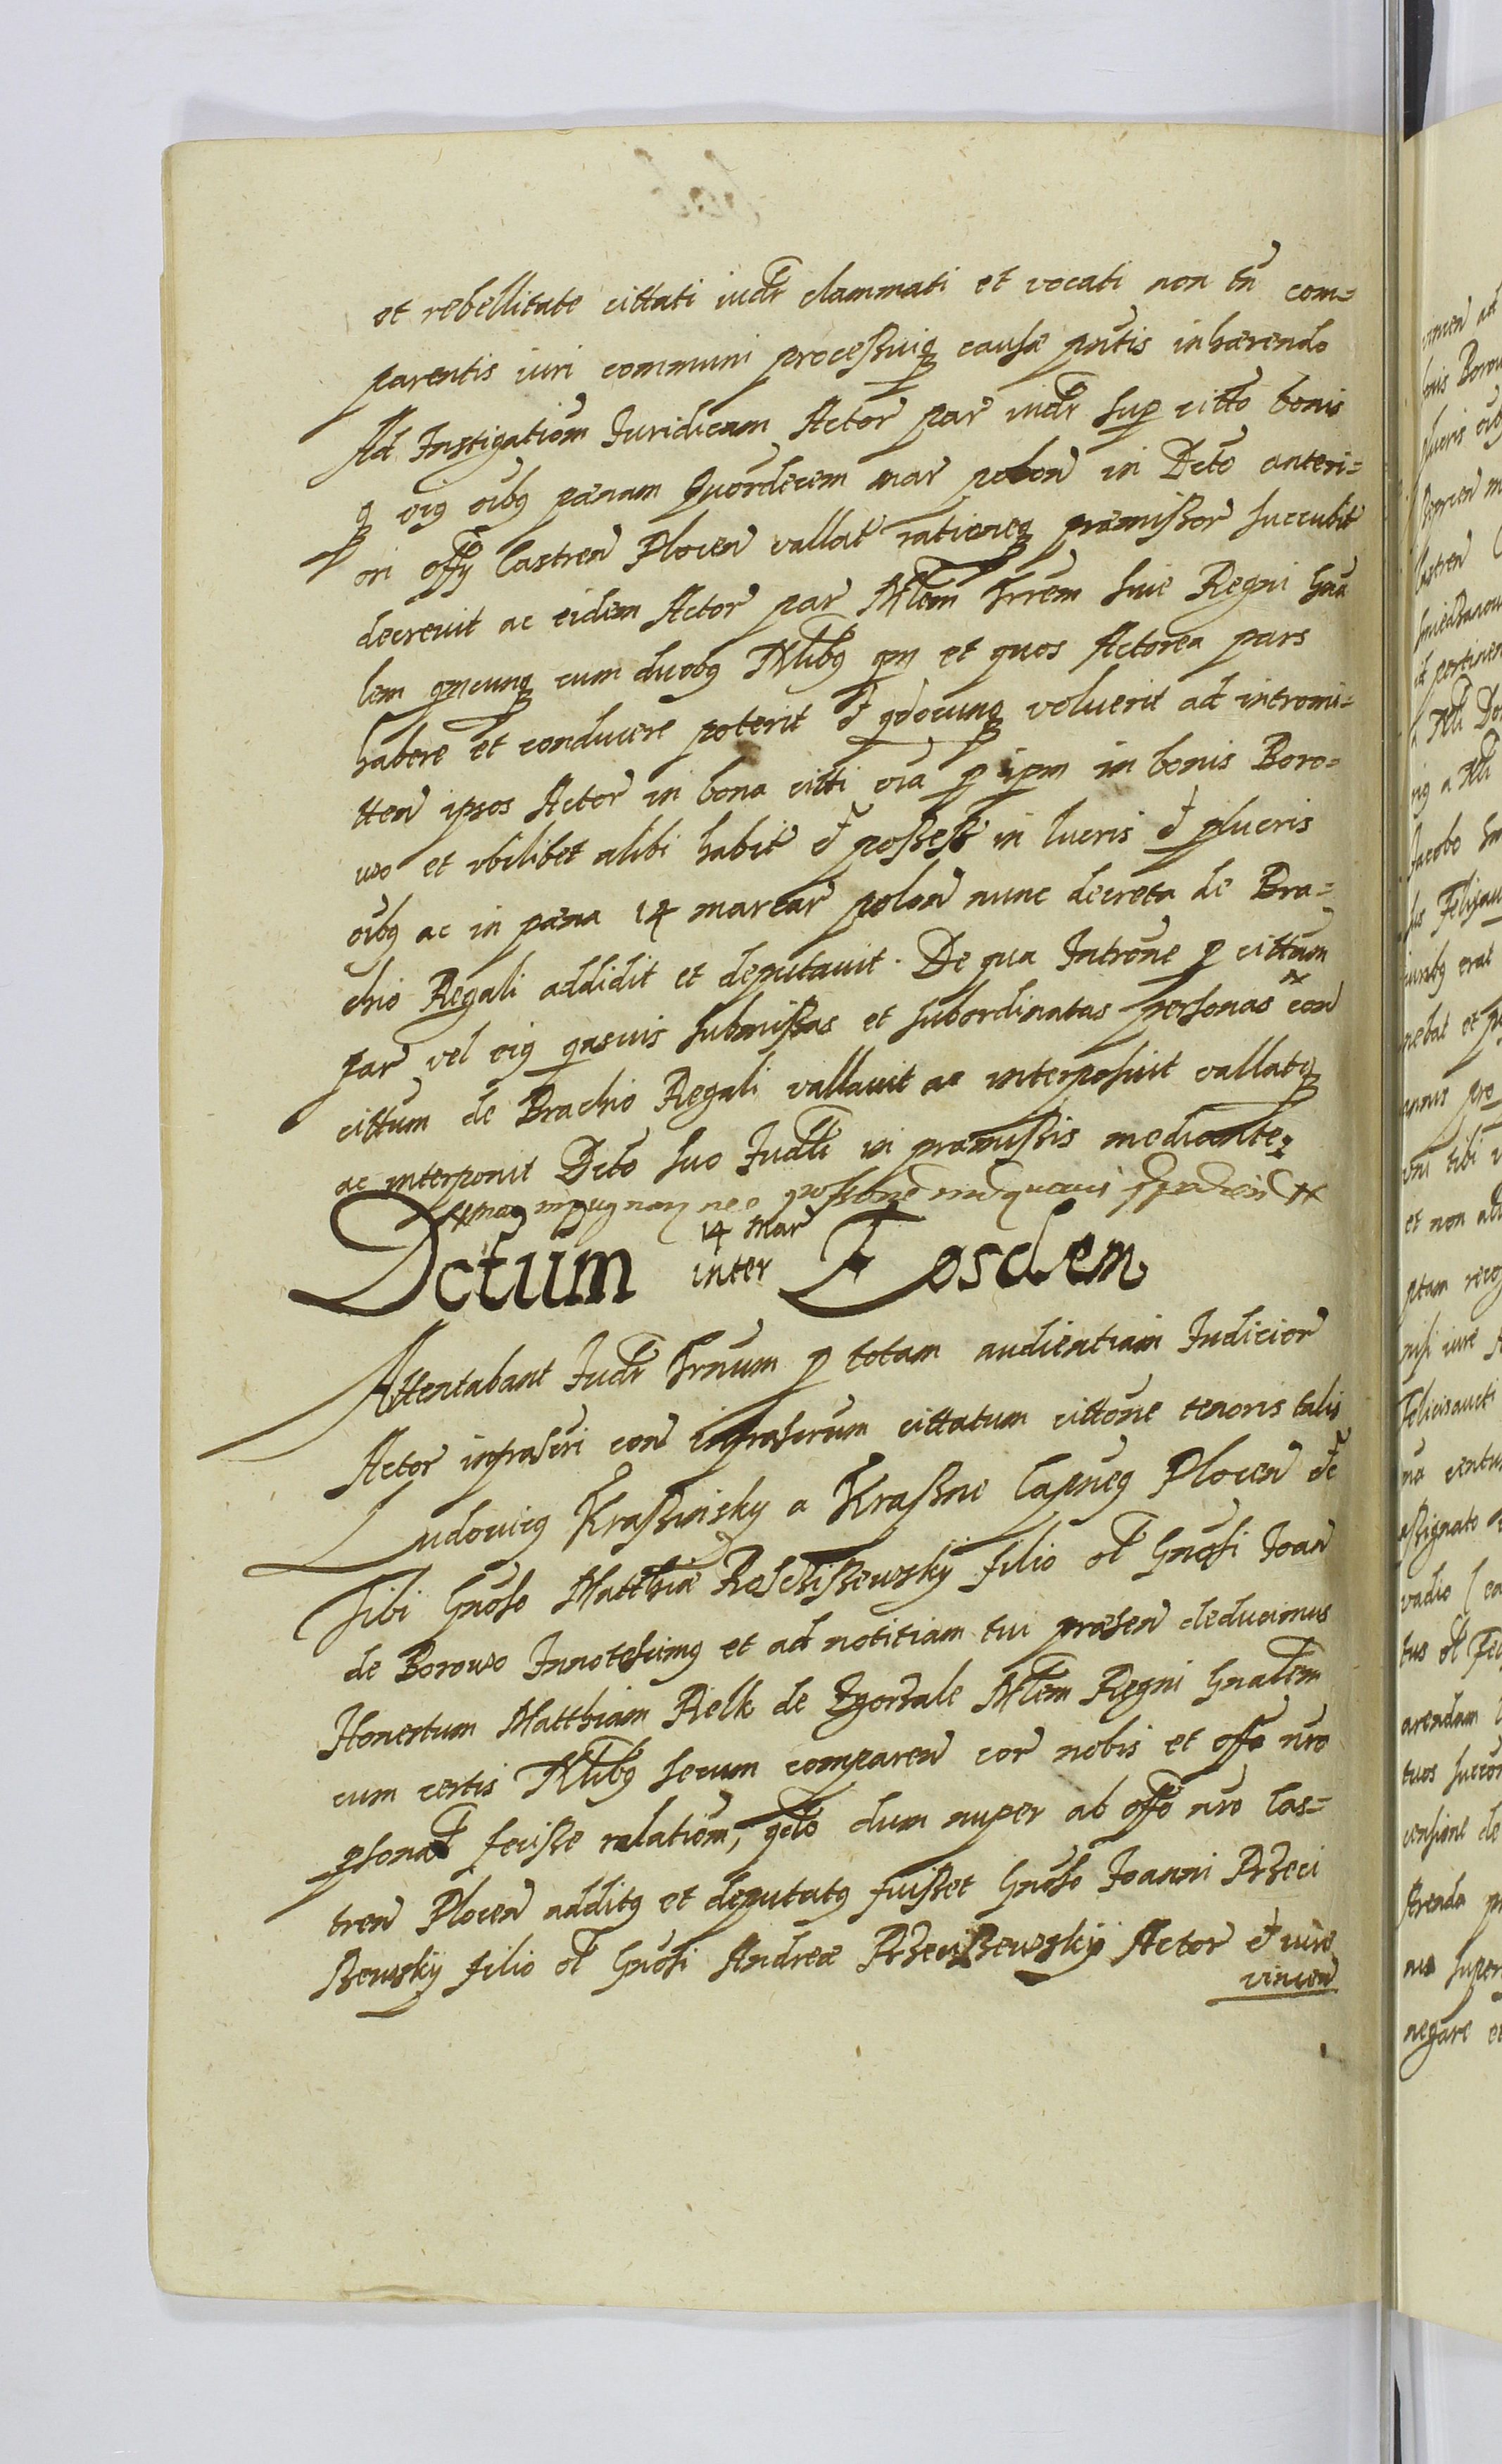 et rebellitate cittati iudr clammati et vocati non tn com=
parentis iuri communi processuiq causae pntis inhaerendo
Ad Instigationem Juridicam Actor par iudr sup citto bonis
q eig oibg paenam Quordecem mar polon in Dcto anteri=
ori offy Castren Plocen vallat rationeq praemissor succubit
decrevit ac eidem Actor par Mlem Trrem sive Regni Gna
lem qncunq cum duobg Nlibg qn et quos Actorea pars
habere et conducere poterit et qdocunq voluerit ad intromi=
tten ipsos Actor in bona citti oia p ipm in bonis Boro=
wo et ubilibet alibi habit et possess in lucris et plucris
oibg ac in paena 14 marcar polon nunc decreta de Bra=
chio Regali addidit et deputavit. De qua Introne p cittum
par vel eig quasvis submissas et subordinatas personas non
cittum de Brachio Regali vallavit ac interposuit vallatq
ac interponit Dcto suo Judli in praemissis mediante
impugnan nec possone
Dctum 14 mar inter Eosdem
Attentabant Judr Trnum p totam audientiam Judicior
Actor infrascri con infrascrum cittatum cittone tenoris talis
Ludovicg Krassinsky a Krassne Capneg Plocen etc
Tibi Gnoso Matthiae Rosciszewsky filio ol Gnosi Joan
de Borowo Innotescimg et ad notitiam tui praesen deducimus
Honestum Matthiam Pielk de Zgorzale Mlem Regni Gnalem
cum certis Nlibg secum comparen cor nobis et offo nro
psonal fecisse relationem, qclo dum nuper ab offo nro Cas=
tren Plocen additg et deputatg fuisset Gnoso Joanni Przeci
szewsky filio ol Gnosi Andreae Przeciszewsky Actor et iure
vincen